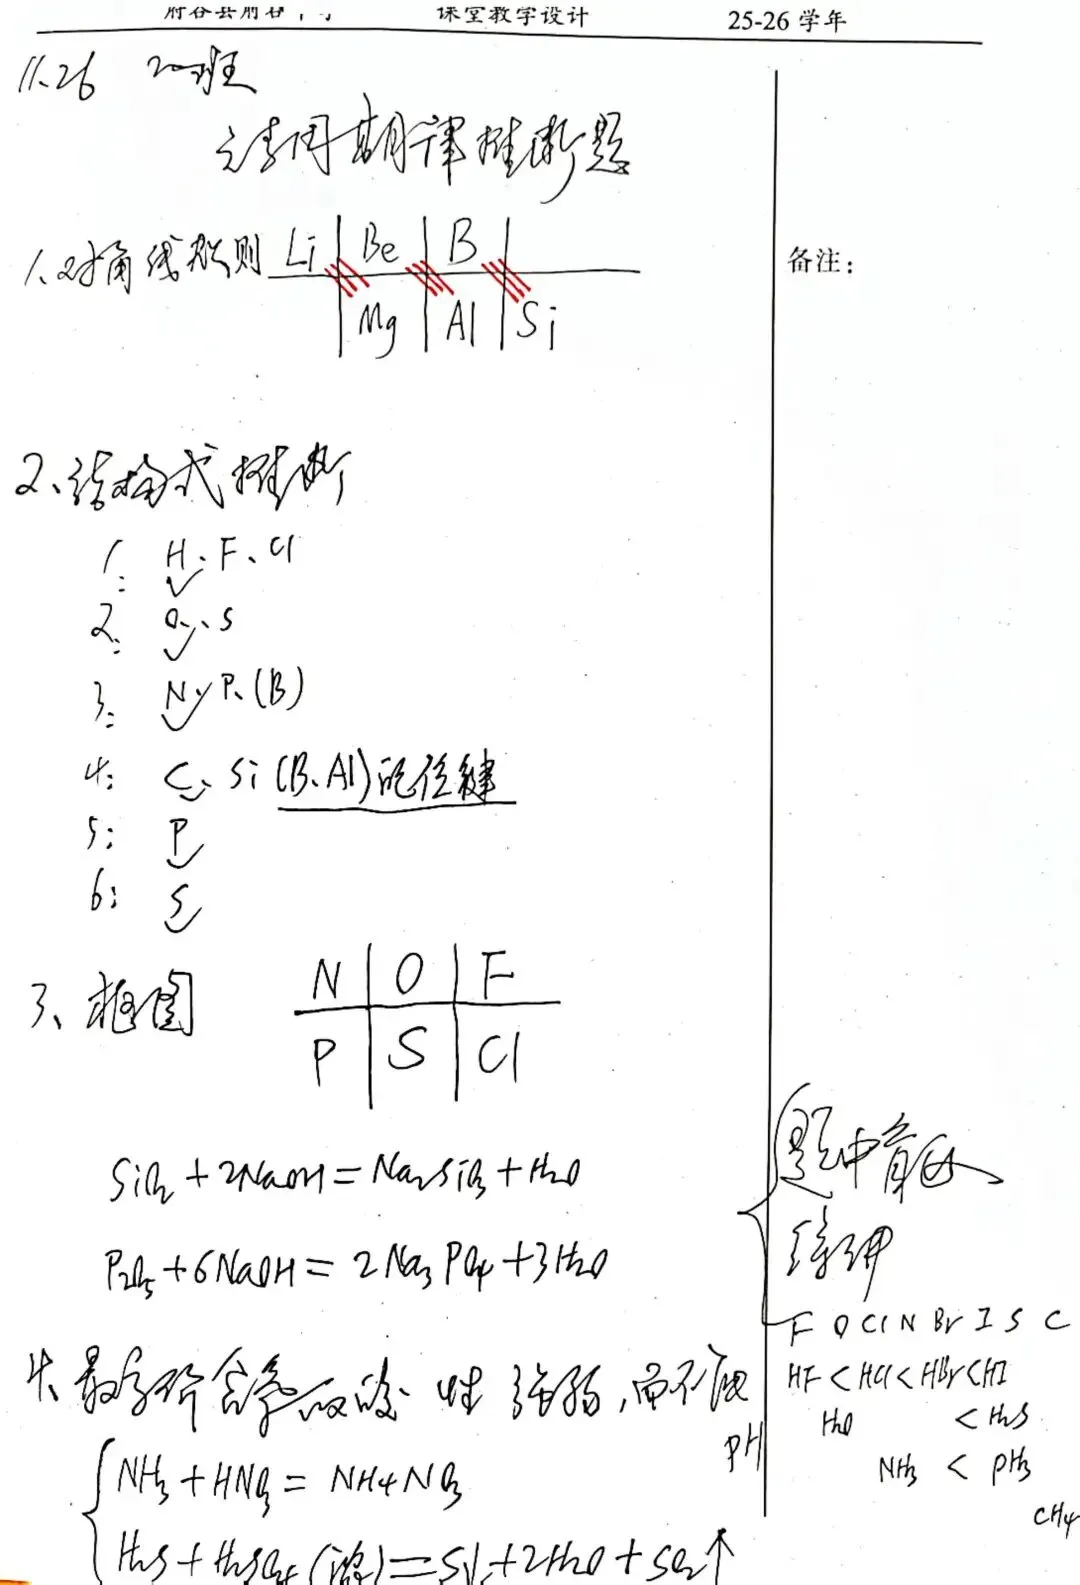 课堂教学设计
25-26 学年
11.26 20班
元素周期律推断题
1、对角线规则 Li Be B
Mg Al Si
备注：
2、结构式推断
1: H、F、Cl
2: O、S
3: N、P、(B)
4: C、Si (B、Al) 配位键
5: P
6: S
3、框图
N O F
P S Cl
SiO₂ + 2NaOH = Na₂SiO₃ + H₂O
P₂O₅ + 6NaOH = 2Na₃PO₄ + 3H₂O
4、最高价含氧酸 性强弱，而不
pH
NH₃ + HNO₃ = NH₄NO₃
H₂S + H₂SO₄ (浓) = S↓ + 2H₂O + SO₂↑
题中
F O Cl N Br I S C
HF < HCl < HBr < HI
H₂O < H₂S
NH₃ < PH₃
CH₄